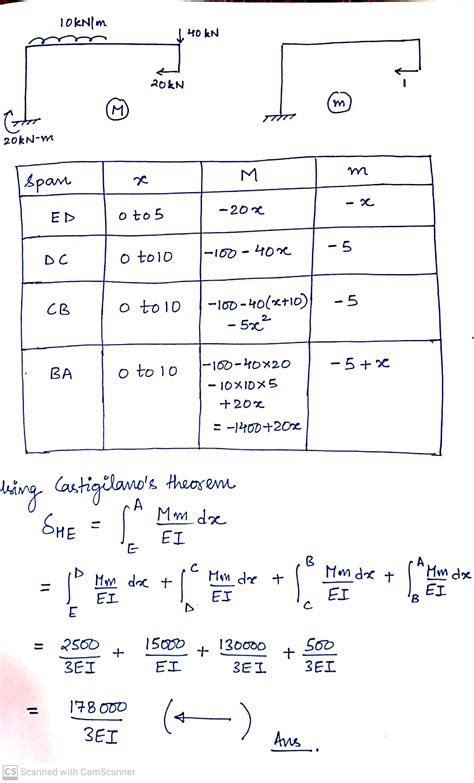 10kN/m
40 kN
20kN
M
20kN-m
m
1
Span x M m
ED 0 to 5 -20x -x
DC 0 to 10 -100 - 40x -5
CB 0 to 10 -100-40(x+10) -5
- 5x²
BA 0 to 10 -100-40×20 -5+x
-10×10×5
+20x
= -1400+20x
Using Castigilano's theorem
δHE = ∫_E^A Mm/EI dx
= ∫_E^D Mm/EI dx + ∫_D^C Mm/EI dx + ∫_C^B Mm/EI dx + ∫_B^A Mm/EI dx
= 2500/3EI + 15000/EI + 130000/3EI + 500/3EI
= 178000/3EI (←)
Ans.
CS Scanned with CamScanner